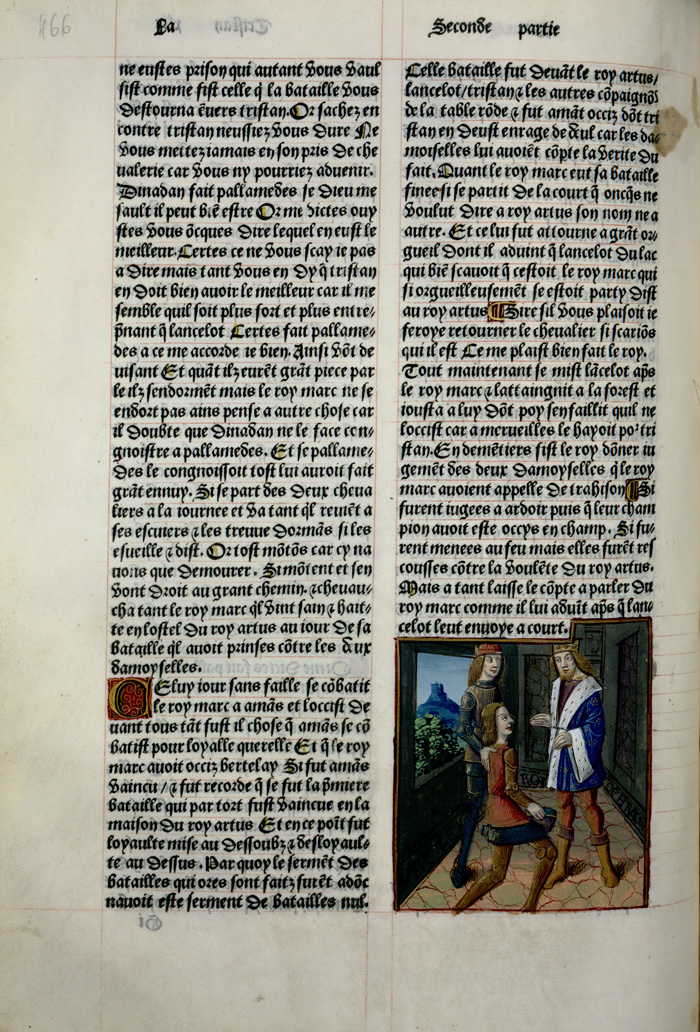 466
La
Seconde partie
ne eustes prison qui autant vous vaul
sist comme fist celle q̄ la bataille vous
destourna ēuers tristan. Or sachez en
contre tristan neussiez vous dure Ne
vous mettez iamais en son pris de che
ualerie car vous ny pourriez aduenir.
Dinadan fait pallamedes se dieu me
sault il peut biē estre Or me dictes ouy
stes vous ōcques dire lequel en eust le
meilleur. Certes ce ne vous scay ie pas
a dire mais tant vous en dy q̄ tristan
en doit bien auoir le meilleur car il me
semble quil soit plus fort et plus entre⸗
p̄nant q̄ lancelot Certes fait pallame⸗
des a ce me accorde ie bien. Ainsi vōt de
uisant Et quāt ilz eurēt grāt piece par
le ilz sendormēt mais le roy marc ne se
endort pas ains pense a autre chose car
il doubte que dinadan ne le face con⸗
gnoistre a pallamedes. Et se pallame⸗
des le congnoissoit tost lui auroit fait
grāt ennuy. Si se part des deux cheua
liers a la iournee et va tant q̄l reuiēt a
ses escuiers ⁊ les treuue dormās si les
esueille ⁊ dist. Or tost mōtōs car cy na
uons que demourer. Si mōtent et sen
vont droit au grant chemin. ⁊ cheuau⸗
cha tant le roy marc q̄l vint sain ⁊ hait⸗
te en lostel du roy artus au iour de sa
bataille q̄l auoit prinses cōtre les deux
damoyselles.
Celuy iour sans faille se cōbatit
le roy marc a amās et loccist de
uant tous tāt fust il chose q̄ amās se cō
batist pour loyalle querelle Et q̄ le roy
marc auoit occiz bertelay Si fut amās
vaincu / ⁊ fut recorde q̄ se fut la p̄miere
bataille qui par tort fust vaincue en la
maison du roy artus Et en ce poīt fut
loyaulte mise au dessoubz ⁊ desloyaul⸗
te au dessus. Par quoy le sermēt des
batailles qui ores sont faitz furēt adōc
nauoit este serment de batailles nul.
Celle bataille fut deuāt le roy artus /
lancelot / tristan ⁊ les autres cōpaignōs
de la table rōde ⁊ fut amāt occiz dōt tri
stan en deust enrage de deul car les da⸗
moiselles lui auoiēt cōpte la verite du
fait. Quant le roy marc eut sa bataille
finee si se partit de la court q̄ oncq̄s ne
voulut dire a roy artus son nom ne a
autre. Et ce lui fut attourne a grāt or⸗
gueil dont il aduint q̄ lancelot du lac
qui biē scauoit q̄ cestoit le roy marc qui
si orgueilleusemēt se estoit party dist
au roy artus Sire sil vous plaisoit ie
feroye retourner le cheualier si scariōs
qui il est Ce me plaist bien fait le roy.
Tout maintenant se mist lācelot ap̄s
le roy marc ⁊ lattaingnit a la forest et
iousta a luy dōt poy sen faillit quil ne
loccist car a merueilles le hayoit por tri
stan. En demētiers fist le roy dōner iu
gemēt des deux damoyselles q̄ le roy
marc auoient appelle de trahison Si
furent iugees a ardoir puis q̄ leur cham
pion auoit este occys en champ. Si fu⸗
rent menees au feu mais elles furēt res
cousses cōtre la voulēte du roy artus.
Mais a tant laisse le cōpte a parler du
roy marc comme il lui aduīt ap̄s q̄ lan⸗
celot leut enuoye a court.